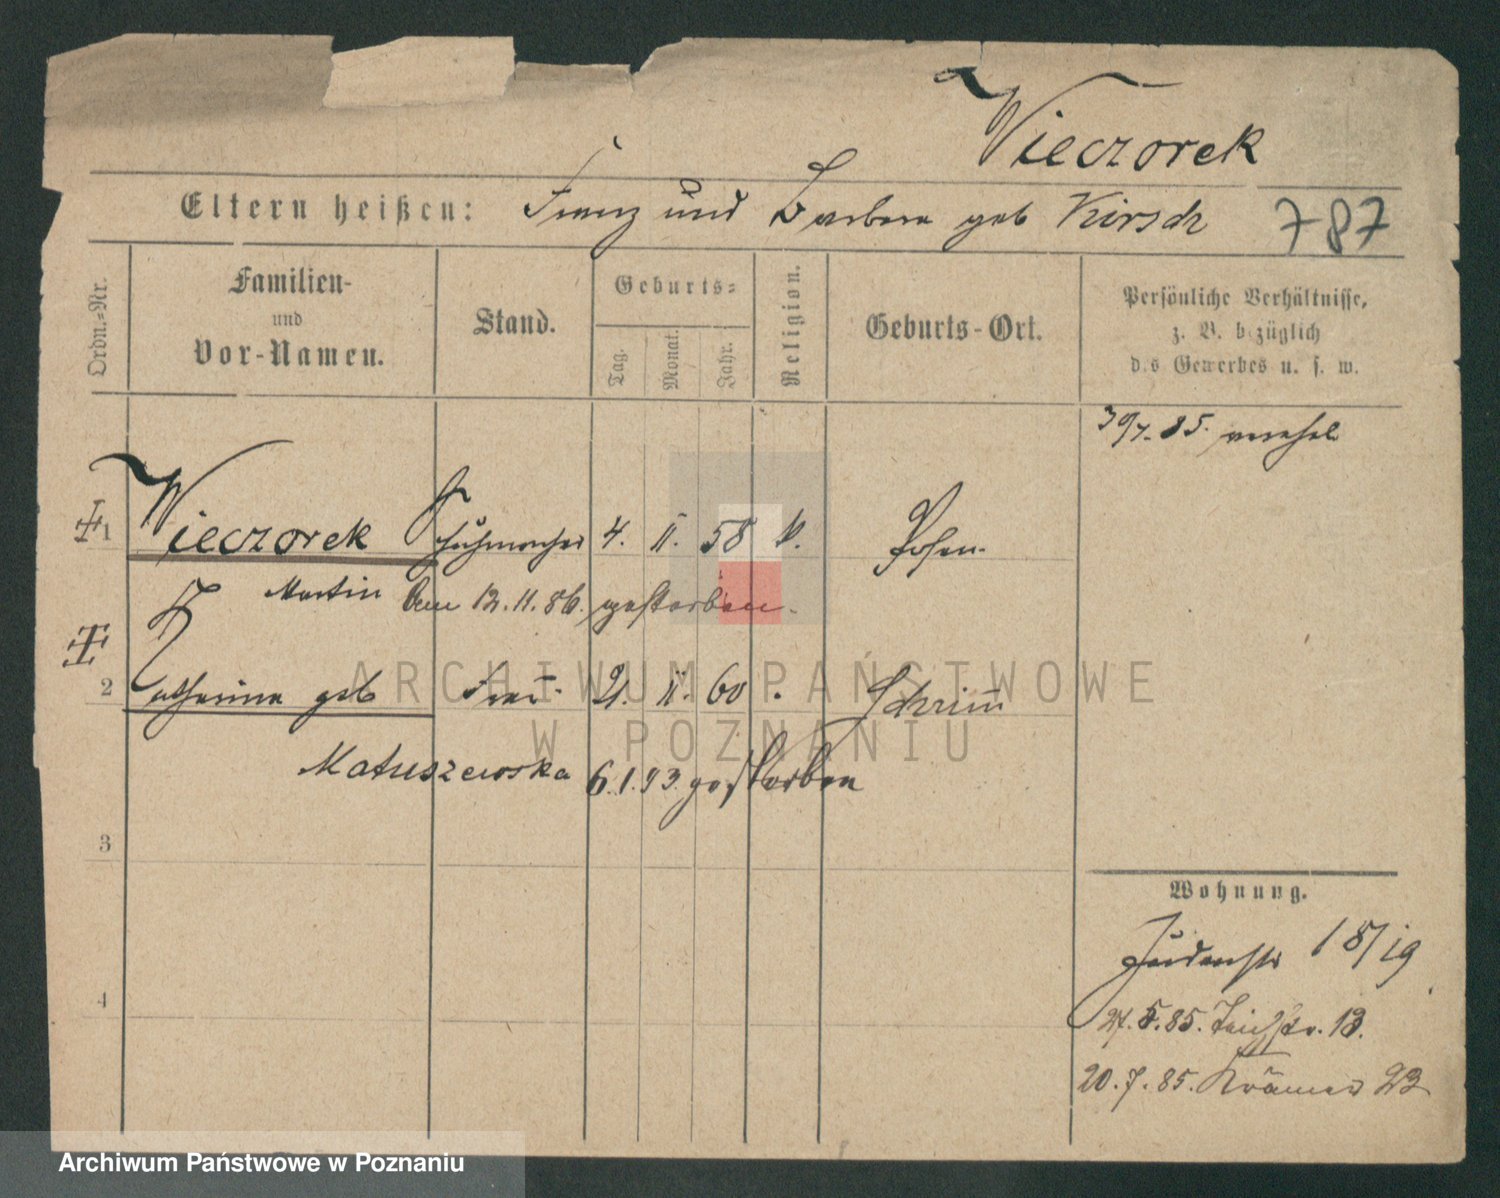 Wieczorek
Eltern heißen: Franz und Barbara geb Kirsch 787
Ordn.-Nr.
Familien-
und
Vor-Namen.
Stand.
Geburts-
Tag.
Monat.
Jahr.
Religion.
Geburts-Ort.
Persönliche Verhältnisse,
z. B. bezüglich
des Gewerbes u. s. w.
85. verehel
1 Wieczorek Schuhmacher 4. II. 58 k. Posen.
Martin Am 12.11.86. gestorben.
2 Catharina geb Frau 21. II. 60 Schrimm
Matuszewska 6.1.93 gestorben
3
4
Wohnung.
Judenstr 18/19
27.5.85. Teichstr. 13.
20.7.85. Krämer 23
ARCHIWUM PAŃSTWOWE
W POZNANIU
Archiwum Państwowe w Poznaniu